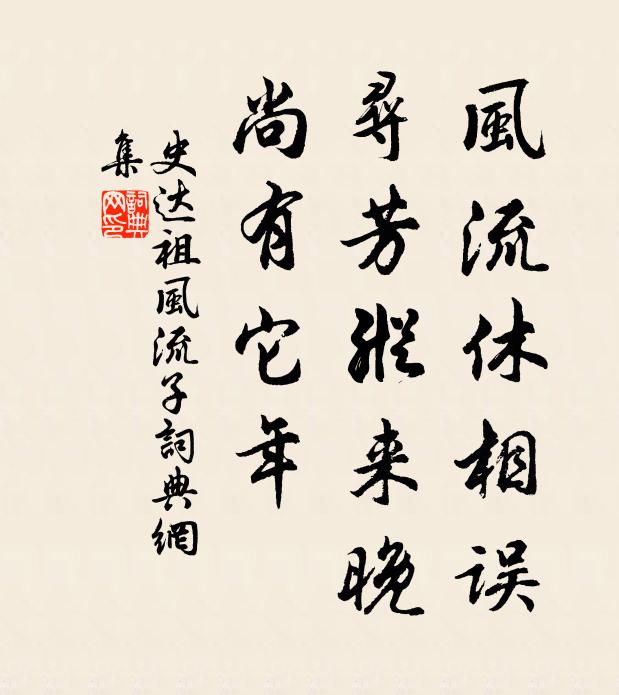 風流休相误
尋芳縱来晚
尚有它年
史达祖風流子詞典網
集
詞典
网印